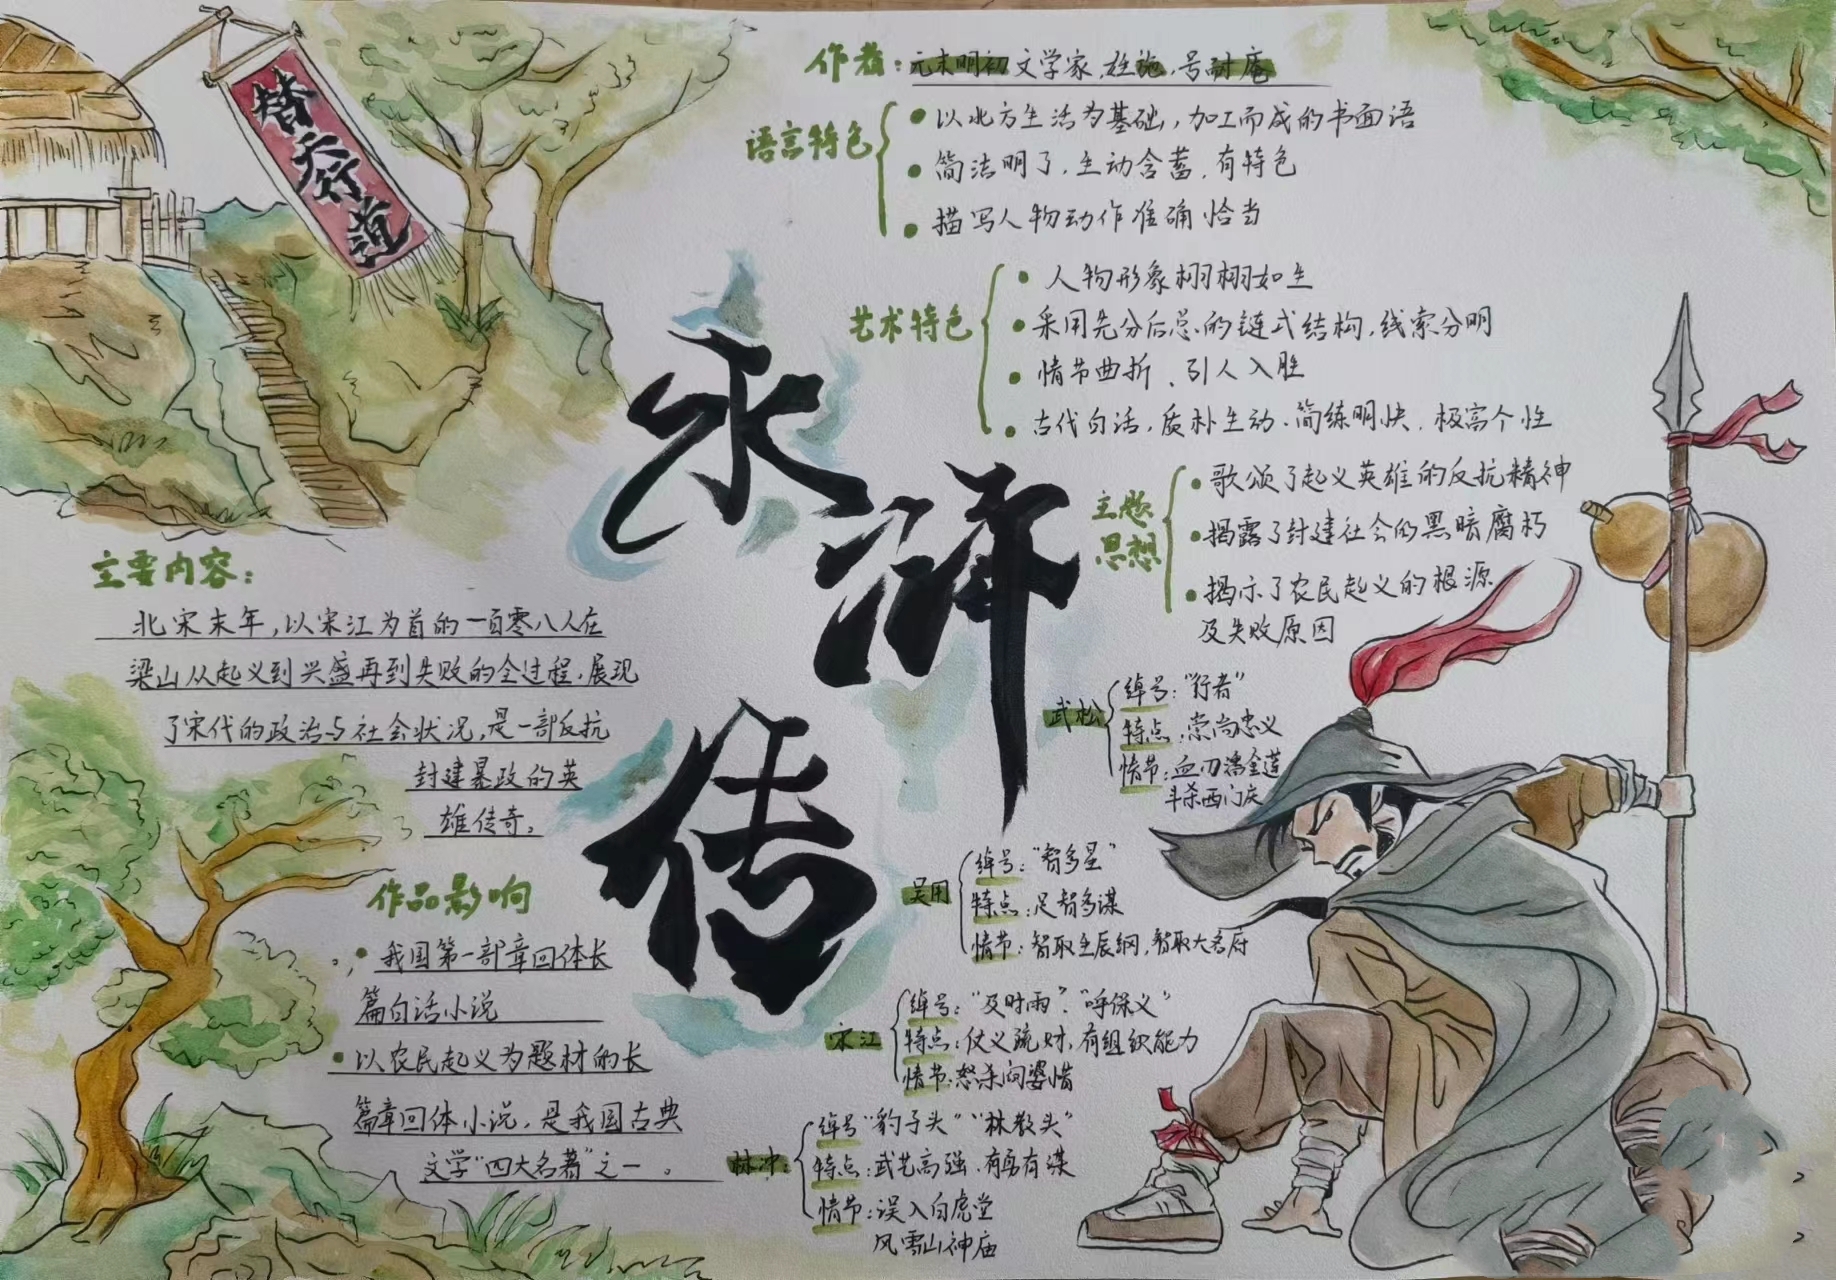 替天行道
水浒传
作者：元末明初文学家，姓施，号耐庵
语言特色
以北方生活为基础，加工而成的书面语
简洁明了，生动含蓄，有特色
描写人物动作准确恰当
艺术特色
人物形象栩栩如生
采用先分后总的链式结构，线索分明
情节曲折、引人入胜
古代白话，质朴生动、简练明快，极高个性
主题
思想
歌颂了起义英雄的反抗精神
揭露了封建社会的黑暗腐朽
揭示了农民起义的根源
及失败原因
主要内容：
北宋末年，以宋江为首的一百零八人在
梁山从起义到兴盛再到失败的全过程，展现
了宋代的政治与社会状况，是一部反抗
封建暴政的英
雄传奇。
作品影响
我国第一部章回体长
篇白话小说
以农民起义为题材的长
篇章回体小说，是我国古典
文学“四大名著”之一。
武松
绰号：“行者”
特点：崇尚忠义
情节：血刃潘金莲
斗杀西门庆
吴用
绰号：“智多星”
特点：足智多谋
情节：智取生辰纲，智取大名府
宋江
绰号：“及时雨”、“呼保义”
特点：仗义疏财，有组织能力
情节：怒杀阎婆惜
林冲：
绰号“豹子头”“林教头”
特点：武艺高强，有勇有谋
情节：误入白虎堂
风雪山神庙